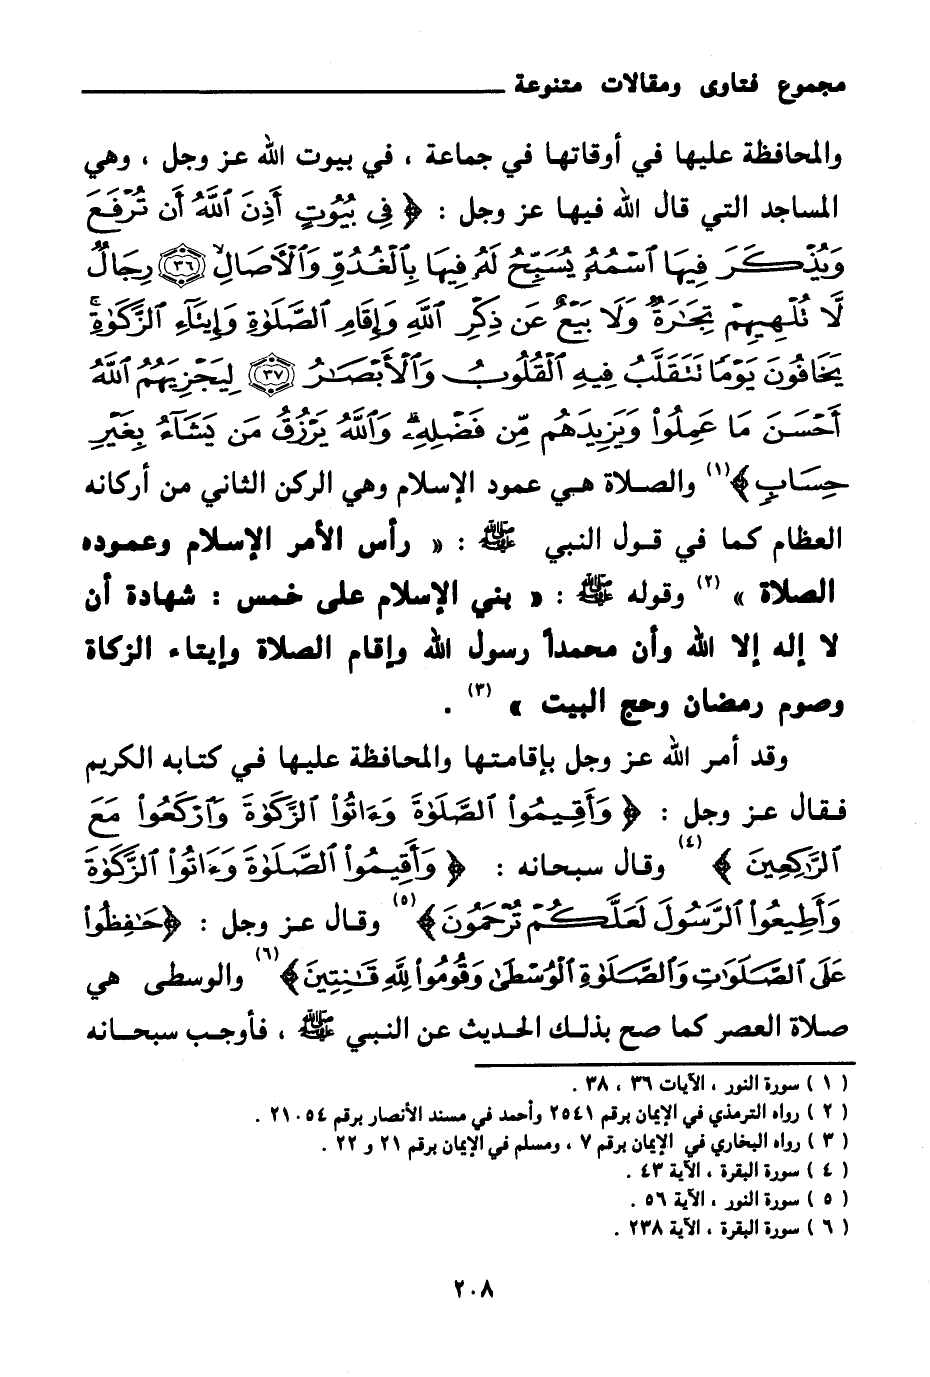 مجموع فتاوى ومقالات متنوعة
والمحافظة عليها في أوقاتها في جماعة ، في بيوت الله عز وجل ، وهي
المساجد التي قال الله فيها عز وجل : ﴿ فِي بُيُوتٍ أَذِنَ ٱللَّهُ أَن تُرْفَعَ
وَيُذْكَرَ فِيهَا ٱسْمُهُۥ يُسَبِّحُ لَهُۥ فِيهَا بِٱلْغُدُوِّ وَٱلْأَصَالِ ۙ ﴿٣٦﴾ رِجَالٌ
لَّا تُلْهِيهِمْ تِجَٰرَةٌ وَلَا بَيْعٌ عَن ذِكْرِ ٱللَّهِ وَإِقَامِ ٱلصَّلَوٰةِ وَإِيتَآءِ ٱلزَّكَوٰةِ ۙ
يَخَافُونَ يَوْمًا تَتَقَلَّبُ فِيهِ ٱلْقُلُوبُ وَٱلْأَبْصَٰرُ ﴿٣٧﴾ لِيَجْزِيَهُمُ ٱللَّهُ
أَحْسَنَ مَا عَمِلُوا۟ وَيَزِيدَهُم مِّن فَضْلِهِۦ ۗ وَٱللَّهُ يَرْزُقُ مَن يَشَآءُ بِغَيْرِ
حِسَابٍ ﴾(١) والصلاة هي عمود الإسلام وهي الركن الثاني من أركانه
العظام كما في قول النبي ﷺ : « رأس الأمر الإسلام وعموده
الصلاة » (٢) وقوله ﷺ : « بني الإسلام على خمس : شهادة أن
لا إله إلا الله وأن محمداً رسول الله وإقام الصلاة وإيتاء الزكاة
وصوم رمضان وحج البيت » (٣) .
وقد أمر الله عز وجل بإقامتها والمحافظة عليها في كتابه الكريم
فقال عز وجل : ﴿ وَأَقِيمُوا۟ ٱلصَّلَوٰةَ وَءَاتُوا۟ ٱلزَّكَوٰةَ وَٱرْكَعُوا۟ مَعَ
ٱلرَّٰكِعِينَ ﴾ (٤) وقال سبحانه : ﴿ وَأَقِيمُوا۟ ٱلصَّلَوٰةَ وَءَاتُوا۟ ٱلزَّكَوٰةَ
وَأَطِيعُوا۟ ٱلرَّسُولَ لَعَلَّكُمْ تُرْحَمُونَ ﴾(٥) وقال عز وجل : ﴿حَٰفِظُوا۟
عَلَى ٱلصَّلَوَٰتِ وَٱلصَّلَوٰةِ ٱلْوُسْطَىٰ وَقُومُوا۟ لِلَّهِ قَٰنِتِينَ ﴾(٦) والوسطى هي
صلاة العصر كما صح بذلك الحديث عن النبي ﷺ ، فأوجب سبحانه
( ١ ) سورة النور ، الآيات ٣٦ ، ٣٨ .
( ٢ ) رواه الترمذي في الإيمان برقم ٢٥٤١ وأحمد في مسند الأنصار برقم ٢١٠٥٤ .
( ٣ ) رواه البخاري في الإيمان برقم ٧ ، ومسلم في الإيمان برقم ٢١ و ٢٢ .
( ٤ ) سورة البقرة ، الآية ٤٣ .
( ٥ ) سورة النور ، الآية ٥٦ .
( ٦ ) سورة البقرة ، الآية ٢٣٨ .
٢٠٨